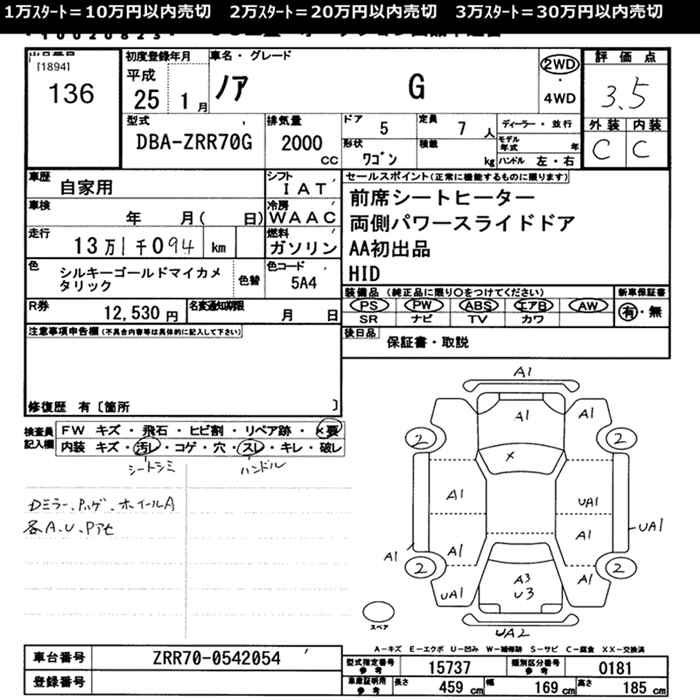 1万ｽﾀｰﾄ＝10万円以内売切　2万ｽﾀｰﾄ＝20万円以内売切　3万ｽﾀｰﾄ＝30万円以内売切
[1894]
136
初度登録年月
平成
25 1月
車名・グレード
ノア G
2WD
・
4WD
評価点
3.5
外装 内装
C C
型式
DBA-ZRR70G
排気量
2000 cc
ドア 5
定員 7 人
形状 ﾜｺﾞﾝ
積載 kg
ディーラー・並行
モデル年式 年
ハンドル 左・右
車歴 自家用
シフト IAT
車検 年 月( 日)
冷房 WAAC
走行 13万1千094 km
燃料 ガソリン
色 シルキーゴールドマイカメタリック
色替
色コード 5A4
R券 12,530円
名変通知期限 月 日
セールスポイント(正常に機能するものに限ります)
前席シートヒーター
両側パワースライドドア
AA初出品
HID
装備品(純正品に限り○をつけてください)
新車保証書
PS PW ABS エアB AW
有・無
SR ナビ TV カワ
後日品 保証書・取説
注意事項申告欄(不具合内容等は具体的に記入して下さい)
修復歴 有〔箇所 〕
検査員記入欄
FW キズ・飛石・ヒビ割・リペア跡・×要
内装 キズ・汚レ・コゲ・穴・スレ・キレ・破レ
シートシミ ハンドル
Dミラー、バンパ、ホイールA
各A、U、Pアセ
A1
A1
2 2
×
A1 UA1
UA1
A1 A1
A1
2 2
A3
U3
UA1 A1
UA2
スペア
A－キズ E－エクボ U－凹み W－補修跡 S－サビ C－腐食 XX－交換済
車台番号 ZRR70-0542054
登録番号
型式指定番号 参考 15737
類別区分番号 参考 0181
車庫証明用 参考 長さ 459 cm 幅 169 cm 高さ 185 cm